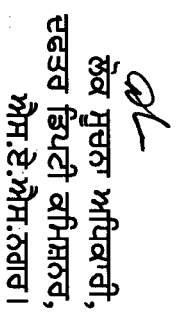 ਲੋਕ ਸੂਚਨਾ ਅਧਿਕਾਰੀ,
ਦਫਤਰ ਡਿਪਟੀ ਕਮਿਸ਼ਨਰ,
ਐਸ.ਏ.ਐਸ.ਨਗਰ।